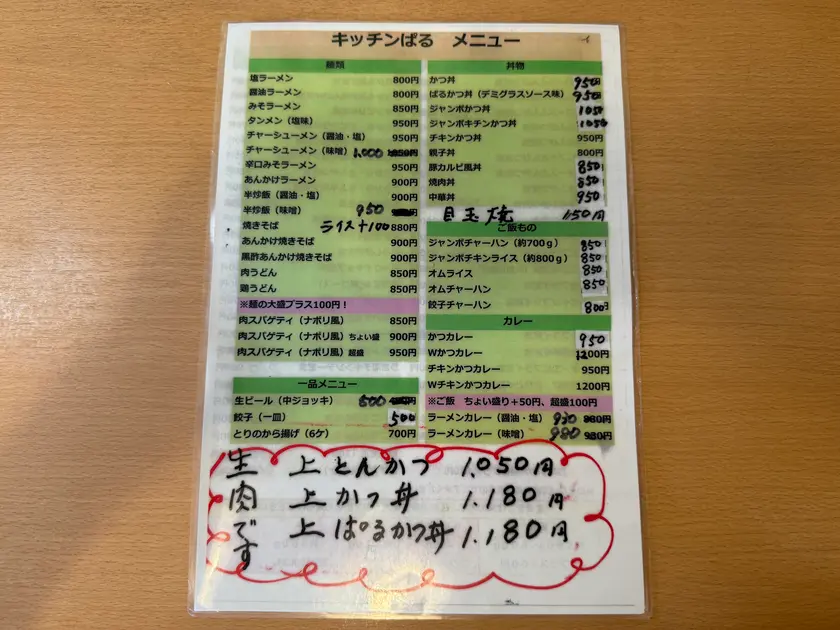 キッチンぱる メニュー
麺類
塩ラーメン 800円
醤油ラーメン 800円
みそラーメン 850円
タンメン（塩味） 950円
チャーシューメン（醤油・塩） 950円
チャーシューメン（味噌） 1,000
辛口みそラーメン 950円
あんかけラーメン 900円
半炒飯（醤油・塩） 900円
半炒飯（味噌） 950
焼きそば ライス+100 880円
あんかけ焼きそば 900円
黒酢あんかけ焼きそば 900円
肉うどん 850円
鶏うどん 850円
※麺の大盛プラス100円！
肉スパゲティ（ナポリ風） 850円
肉スパゲティ（ナポリ風）ちょい盛 900円
肉スパゲティ（ナポリ風）超盛 950円
一品メニュー
生ビール（中ジョッキ） 600
餃子（一皿） 500
とりのから揚げ（6ケ） 700円
丼物
かつ丼 950円
ぱるかつ丼（デミグラスソース味） 950
ジャンボかつ丼 1050
ジャンボチキンかつ丼 1050
チキンかつ丼 950円
親子丼 800円
豚カルビ風丼 850
焼肉丼 850
中華丼 950
目玉焼 150円
ご飯もの
ジャンボチャーハン（約700ｇ） 850
ジャンボチキンライス（約800ｇ） 850
オムライス 850
オムチャーハン 850
餃子チャーハン 800円
カレー
かつカレー 950
Wかつカレー 1200円
チキンかつカレー 950円
Wチキンかつカレー 1200円
※ご飯 ちょい盛り＋50円、超盛100円
ラーメンカレー（醤油・塩） 930
ラーメンカレー（味噌） 980
生肉です
上とんかつ 1.050円
上かつ丼 1.180円
上ぱるかつ丼 1.180円